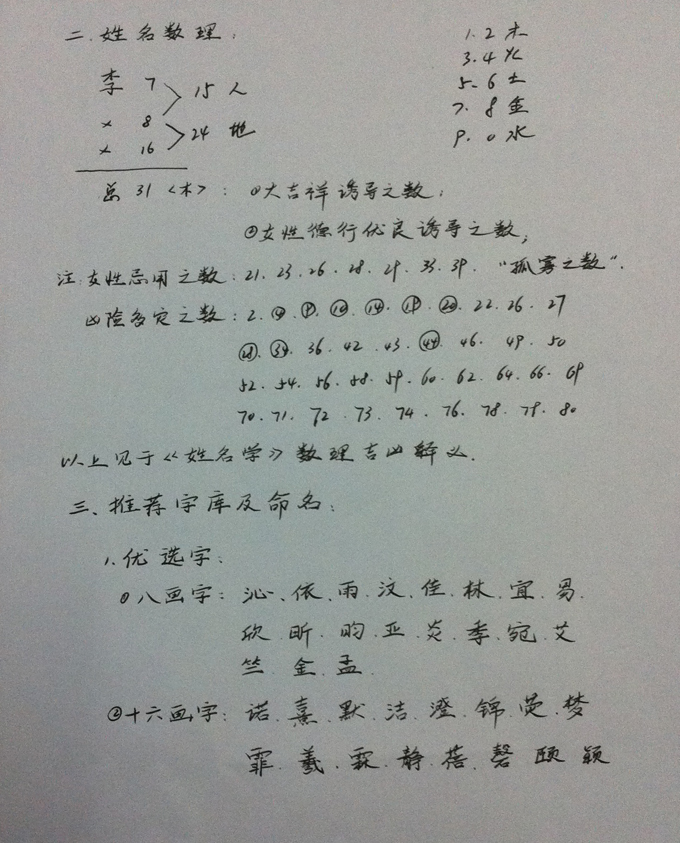 二.姓名数理:
1.2 木
3.4 火
5.6 土
7.8 金
9.0 水
李 7 15 人
× 8
× 16 24 地
总 31 <木>: ①大吉祥诱导之数;
②女性德行优良诱导之数;
注:女性忌用之数: 21. 23. 26. 28. 29. 33. 39. "孤寡之数".
凶险多定之数: 2. ④. ⑨. ⑩. ⑭. ⑲. ⑳. 22. 26. 27
㉘. ㉞. 36. 42. 43. ㊹. 46. 49. 50
52. 54. 56. 58. 59. 60. 62. 64. 66. 69
70. 71. 72. 73. 74. 76. 78. 79. 80
以上见于《姓名学》数理吉凶释义.
三、推荐字库及命名:
1.优选字:
①八画字: 沁、依、雨、汶、佳、林、宜、易.
欣.昕.昀.亚.炎.季.宛.艾
竺.金.孟.
②十六画字: 诺.熹.默.洁.澄.锦.梦
霏.羲.霖.静.蓓.磬 颐 颖